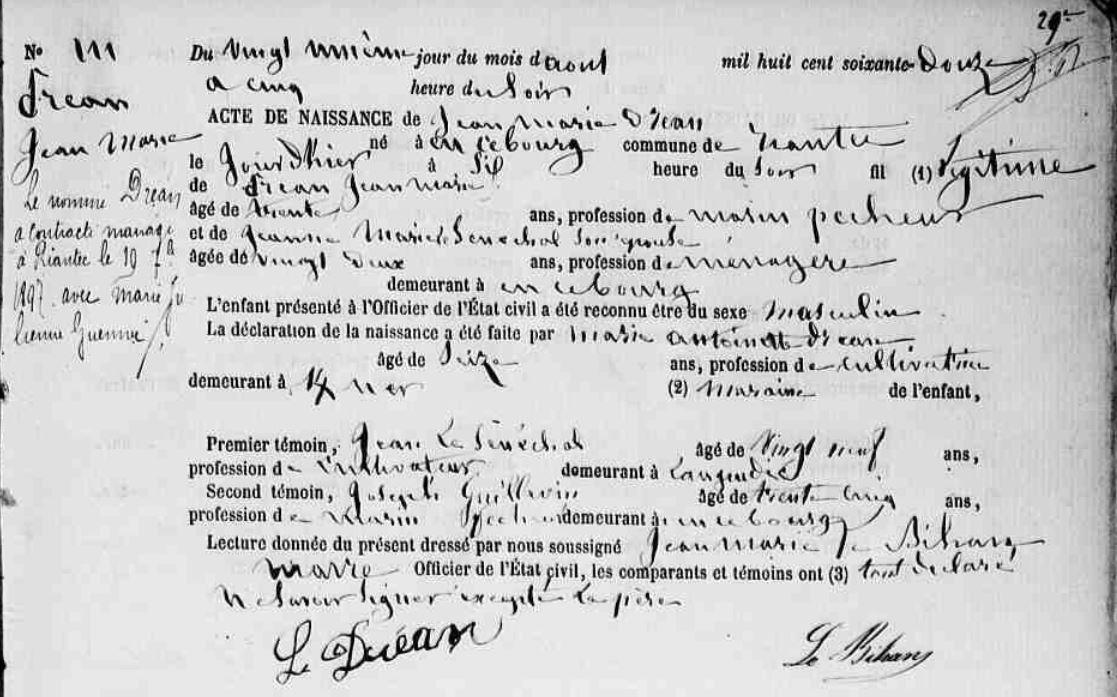 29
N° 111
Drean
Jean Marie
Le nommé Dréan
a contracté mariage
à Riantec le 19 7bre
1897 avec Marie Ju
lienne Guennic
Du vingt unième jour du mois d'aout mil huit cent soixante-douze
a cinq heure du soir
ACTE DE NAISSANCE de Jean Marie Drean
né à en ce bourg commune de riantec
le jourdhier à Six heure du soir fil (1) légitime
de Drean Jean Marie
âgé de trente ans, profession de marin pecheur
et de Jeanne Marie Le Sénéchal son épouse
âgée de vingt deux ans, profession de ménagère
demeurant à en ce bourg
L'enfant présenté à l'Officier de l'État civil a été reconnu être du sexe masculin
La déclaration de la naissance a été faite par marie antoinette Drean
âgé de Seize ans, profession de cultivatrice
demeurant à (2) maraine de l'enfant,
Premier témoin, Jean Le Sénéchal âgé de vingt neuf ans,
profession de cultivateur demeurant à Langudic
Second témoin, Joseph Guillevin âgé de trente cinq ans,
profession de marin pecheur demeurant à en ce bourg
Lecture donnée du présent dressé par nous soussigné Jean Marie Le Bihan
maire Officier de l'État civil, les comparants et témoins ont (3) tout declaré
ne Savoir Signer excepté Le père
Le Dréan Le Bihan